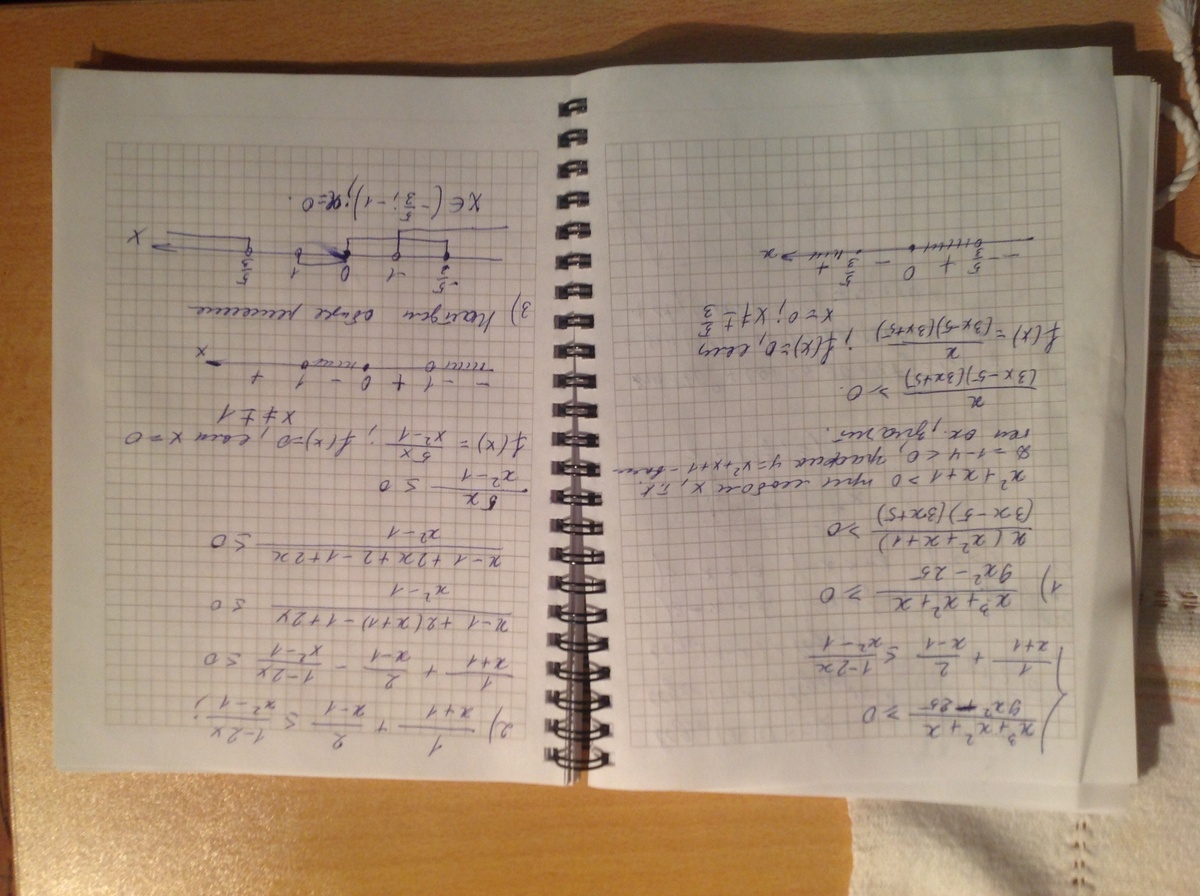 x³+x²+x / 9x²-25 ≥ 0
1/x+1 + 2/x-1 ≤ 1-2x/x²-1
1) x³+x²+x / 9x²-25 ≥ 0
x(x²+x+1) / (3x-5)(3x+5) ≥ 0
x²+x+1>0 при любом x, т.к.
D=1-4<0, график y=x²+x+1 - 
x / (3x-5)(3x+5) ≥ 0.
f(x) = x / (3x-5)(3x+5) ; f(x)=0, если
x=0; x≠± 5/3
- -5/3 + 0 - 5/3 + x
2) 1/x+1 + 2/x-1 ≤ 1-2x/x²-1 ;
1/x+1 + 2/x-1 - 1-2x/x²-1 ≤ 0
x-1+2(x+1)-1+2x / x²-1 ≤ 0
x-1+2x+2-1+2x / x²-1 ≤ 0
5x / x²-1 ≤ 0
f(x) = 5x / x²-1 ; f(x)=0, если x=0
x≠±1
- -1 + 0 - 1 + x
3) Найдем общее решение
-5/3 -1 0 1 5/3 x
x∈(-5/3; -1); x=0.